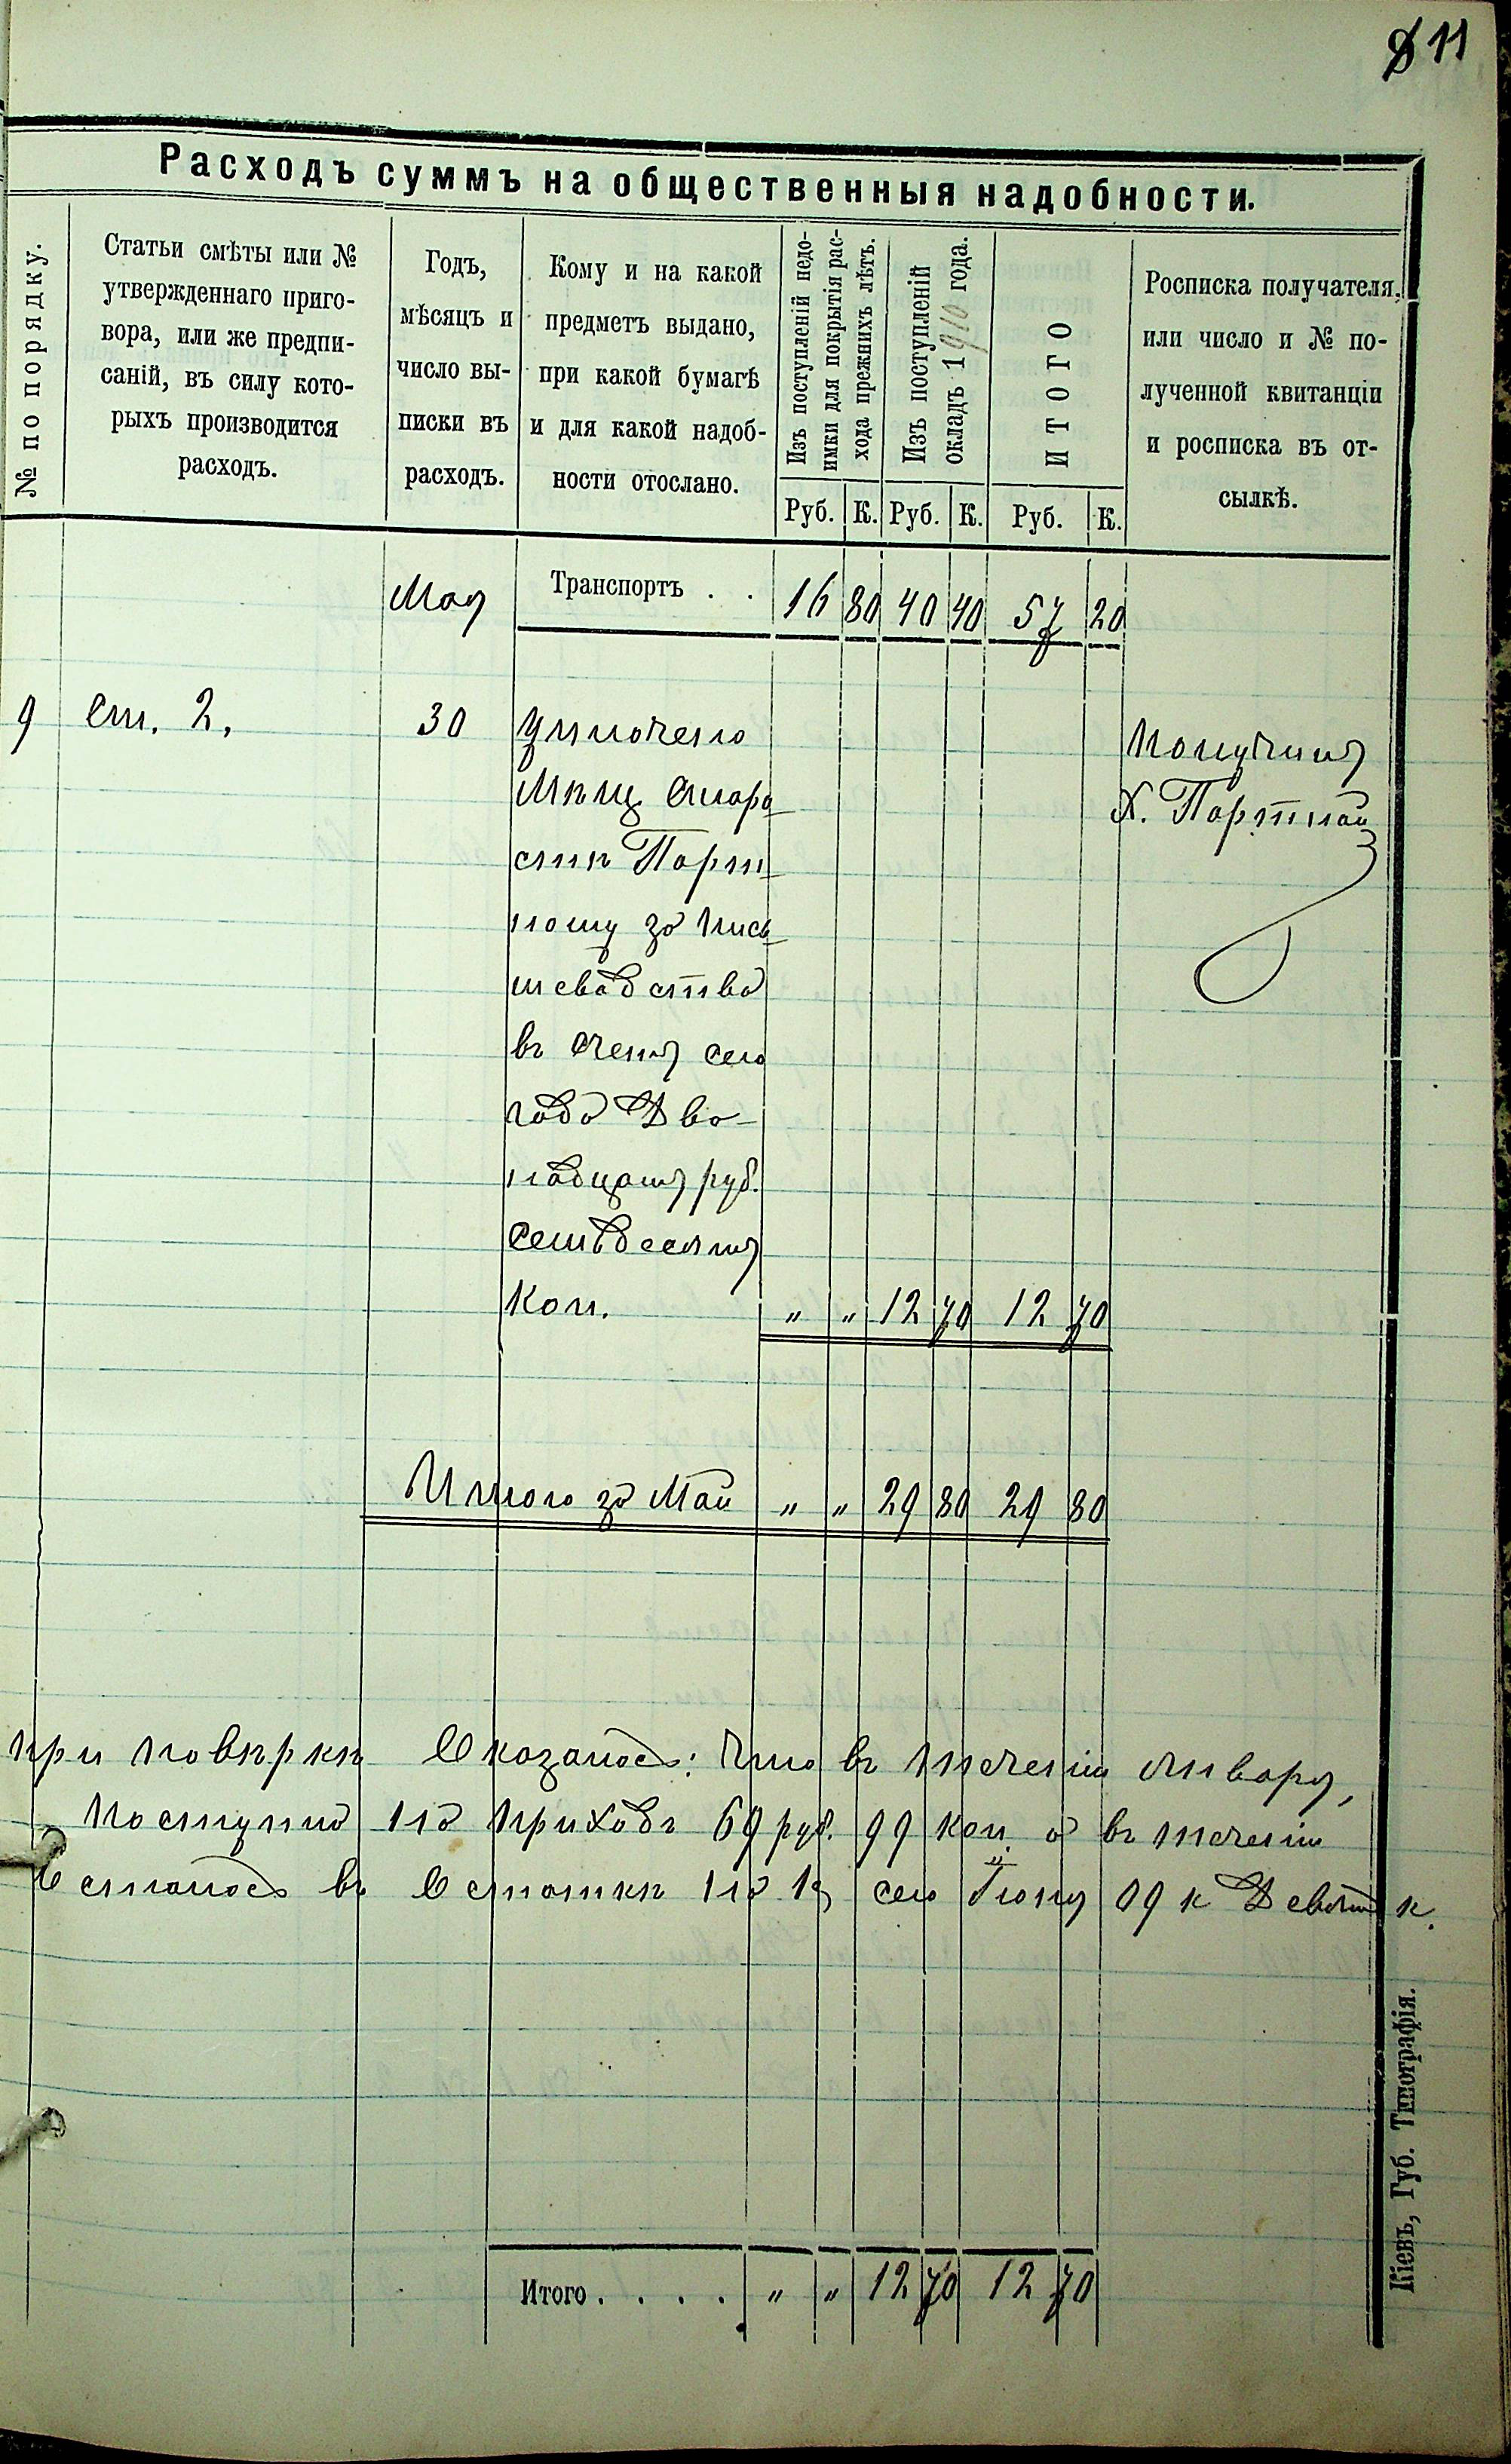 11
Расходъ суммъ на общественныя надобности.
№ по порядку.
Статьи смѣты или №
утвержденнаго приго-
вора, или же предпи-
саній, въ силу кото-
рыхъ производится
расходъ.
Годъ,
мѣсяцъ и
число вы-
писки въ
расходъ.
Кому и на какой
предметъ выдано,
при какой бумагѣ
и для какой надоб-
ности отослано.
Изъ поступленій недо-
имки для покрытія рас-
хода прежнихъ лѣтъ.
Изъ поступленій
окладъ 1910 года.
ИТОГО
Росписка получателя,
или число и № по-
лученной квитанціи
и росписка въ от-
сылкѣ.
Руб. К. Руб. К. Руб. К.
Мая Транспортъ . . 16 80 40 40 57 20
9 ст. 2. 30 Уплочено
Мѣщ. Старо
стѣ Порт
ному за пись
меводства
въ счетъ сего
года Два-
надцать руб.
Семьдесятъ
коп. " " 12 70 12 70
Получилъ
Х. Портной
Итого за Май " " 29 80 29 80
при повѣркѣ Оказалось: что въ теченіи Январъ,
поступило на приходъ 69 руб. 99 коп. а въ теченіи
Осталось въ Остаткѣ на 1е сего Іюня 09 к Девять к.
Итого . . . . " " 12 70 12 70
Кіевъ, Губ. Типографія.